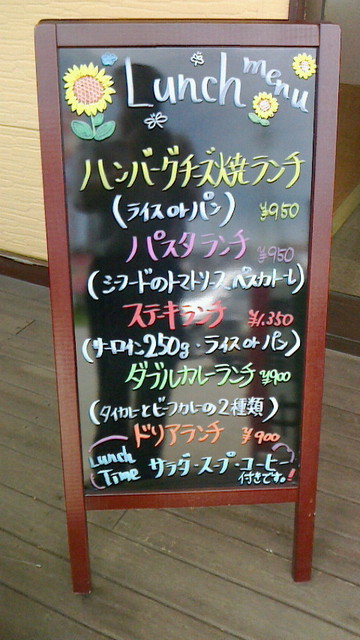 Lunch menu
ハンバーグチーズ焼ランチ
(ライス or パン) ¥950
パスタランチ ¥950
(シーフードのトマトソース ペスカトーレ)
ステーキランチ ¥1,350
(サーロイン250g・ライス or パン)
ダブルカレーランチ ¥900
(タイカレーとビーフカレーの2種類)
ドリアランチ ¥900
Lunch Time サラダ・スープ・コーヒー
付きです。!